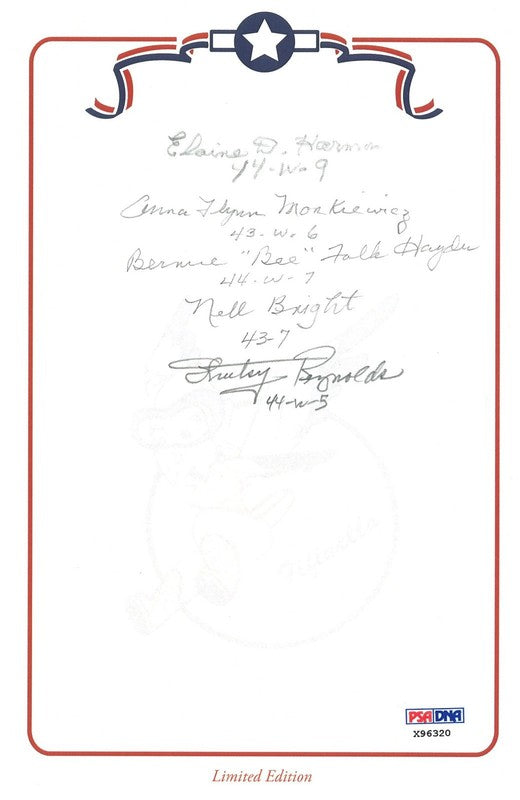 Elaine D. Harmon
44-W-9
Anna Flynn Monkiewicz
43-W-6
Bernice "Bee" Falk Haydu
44-W-7
Nell Bright
43-7
Reynolds
44-W-5
Fifinella
PSA DNA
X96320
Limited Edition